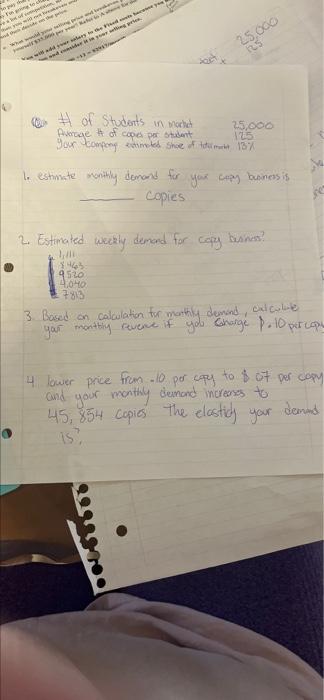 25,000
125
# of Students in market 25,000
Average # of copies per student 125
Your company estimated share of total market 13%
1. estimate monthly demand for your copy business is
copies
2. Estimated weekly demand for copy business?
1,111
8463
9520
4,040
7813
3. Based on calculation for monthly demand, calculate
your monthly revenue if you charge $.10 per copy
4 lower price from .10 per copy to $ 07 per copy
and your monthly demand increases to
45,854 copies The elasticity your demand
is?